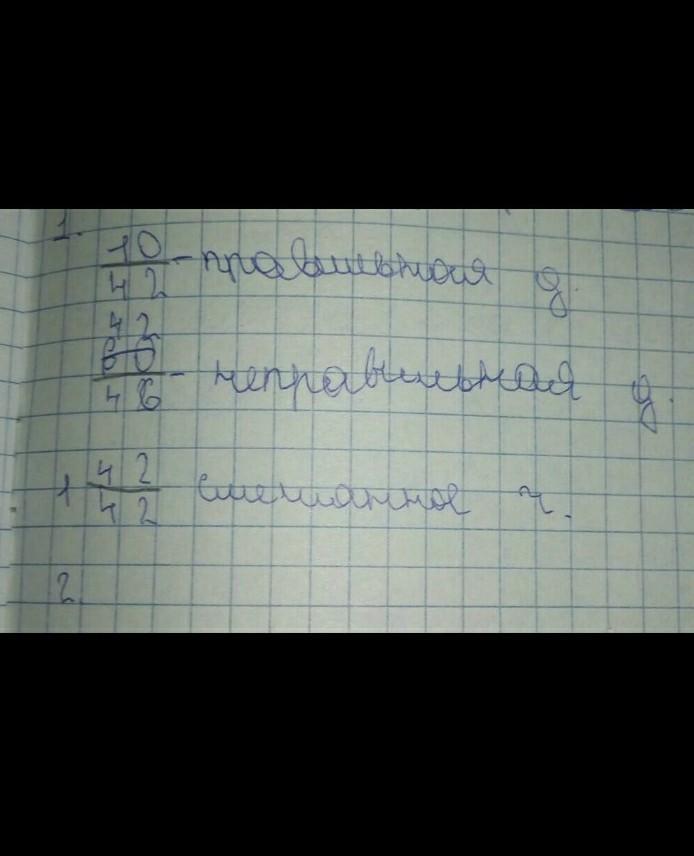 1.
10
42 - правильная д.
42
60
46 - неправильная д.
1 42
42 смешанное ч.
2.